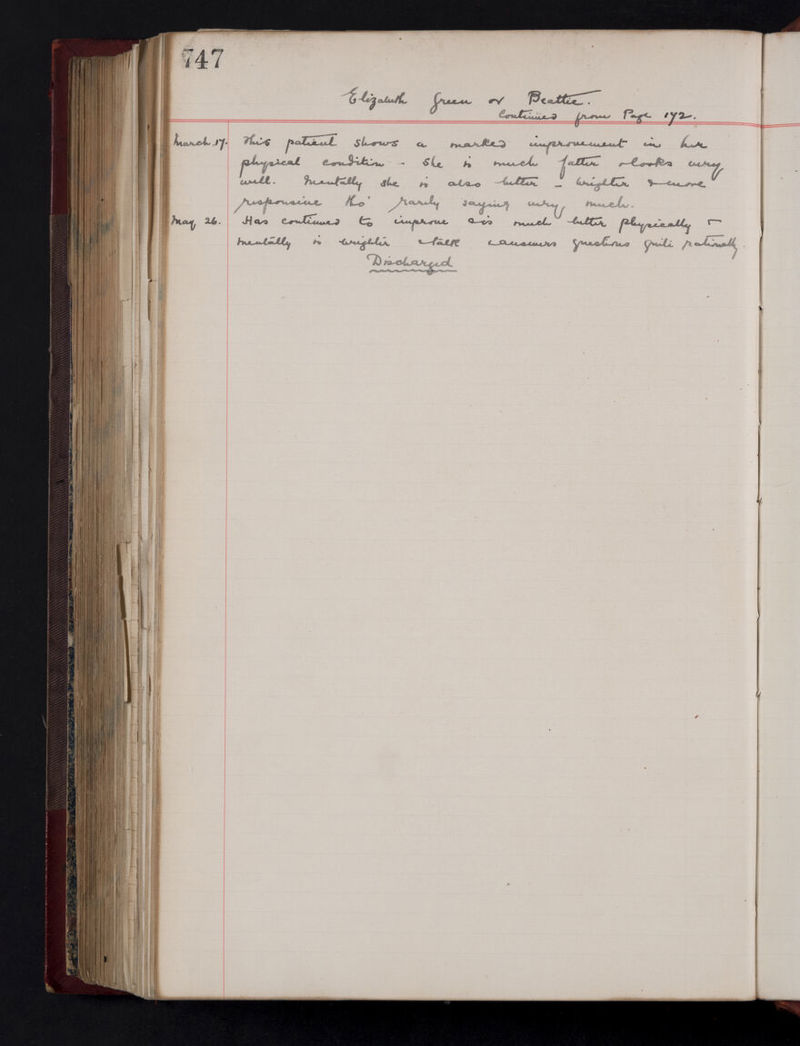 747
Elizabeth Green or Beattie.
Continued from Page 172.
March 17. This patient shows a marked improvement in her
physical condition - She is much fatter & looks very
well. Mentally she is also better - brighter & more
responsive tho' rarely saying very much.
May 26. Has continued to improve & is much better physically &
mentally is brighter & talks & answers questions quite rationally.
Discharged